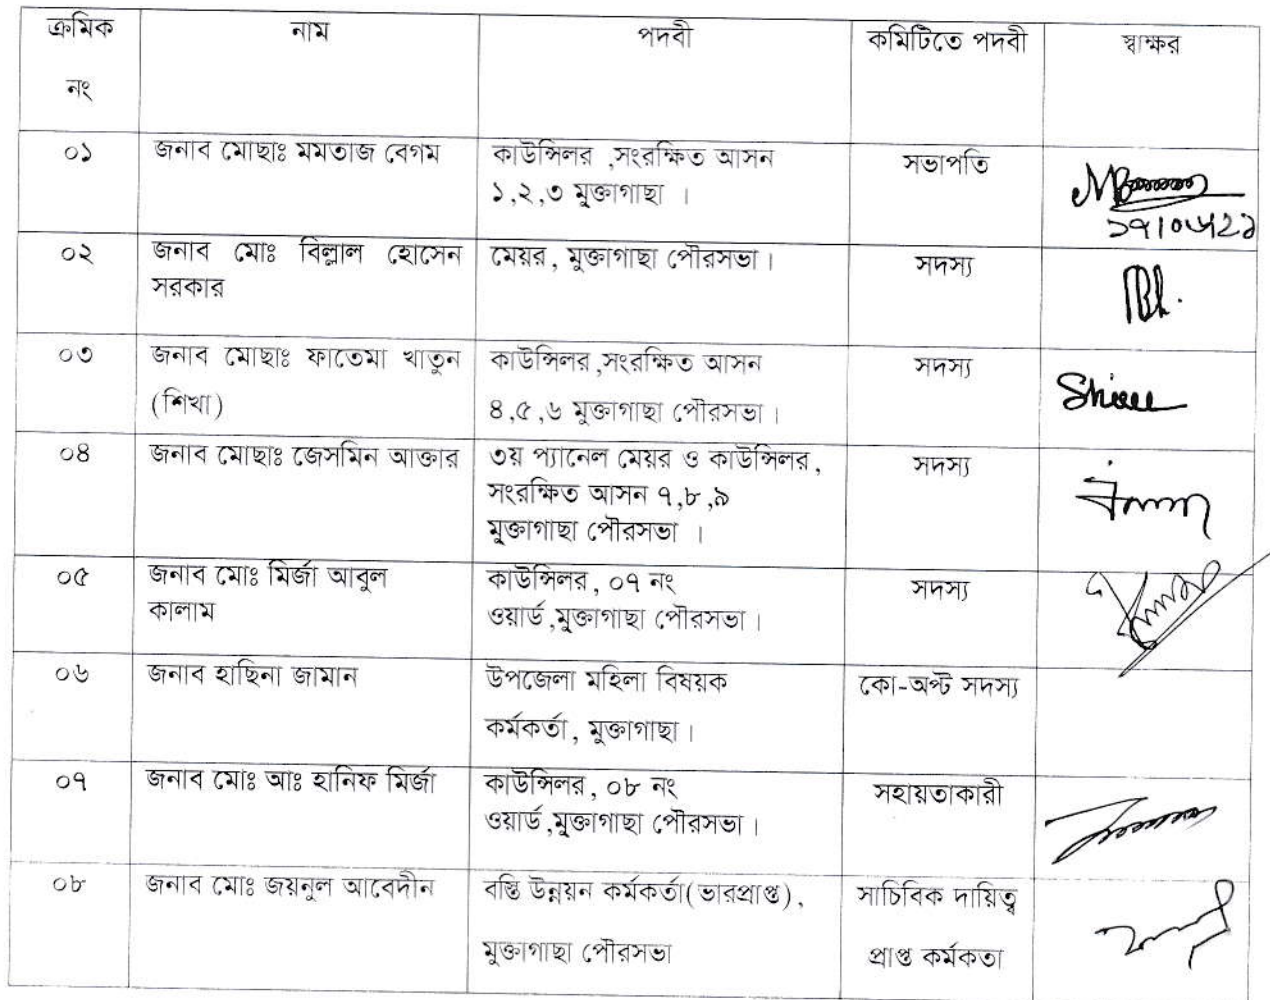 ক্রমিক নং
নাম
পদবী
কমিটিতে পদবী
স্বাক্ষর
০১
জনাব মোছাঃ মমতাজ বেগম
কাউন্সিলর ,সংরক্ষিত আসন
১,২,৩ মুক্তাগাছা ।
সভাপতি
০২
জনাব মোঃ বিল্লাল হোসেন
সরকার
মেয়র, মুক্তাগাছা পৌরসভা।
সদস্য
০৩
জনাব মোছাঃ ফাতেমা খাতুন
(শিখা)
কাউন্সিলর,সংরক্ষিত আসন
৪,৫,৬ মুক্তাগাছা পৌরসভা।
সদস্য
০৪
জনাব মোছাঃ জেসমিন আক্তার
৩য় প্যানেল মেয়র ও কাউন্সিলর,
সংরক্ষিত আসন ৭,৮,৯
মুক্তাগাছা পৌরসভা ।
সদস্য
০৫
জনাব মোঃ মির্জা আবুল
কালাম
কাউন্সিলর, ০৭ নং
ওয়ার্ড,মুক্তাগাছা পৌরসভা।
সদস্য
০৬
জনাব হাছিনা জামান
উপজেলা মহিলা বিষয়ক
কর্মকর্তা, মুক্তাগাছা।
কো-অপ্ট সদস্য
০৭
জনাব মোঃ আঃ হানিফ মির্জা
কাউন্সিলর, ০৮ নং
ওয়ার্ড,মুক্তাগাছা পৌরসভা।
সহায়তাকারী
০৮
জনাব মোঃ জয়নুল আবেদীন
বস্তি উন্নয়ন কর্মকর্তা(ভারপ্রাপ্ত),
মুক্তাগাছা পৌরসভা
সাচিবিক দায়িত্ব
প্রাপ্ত কর্মকতা